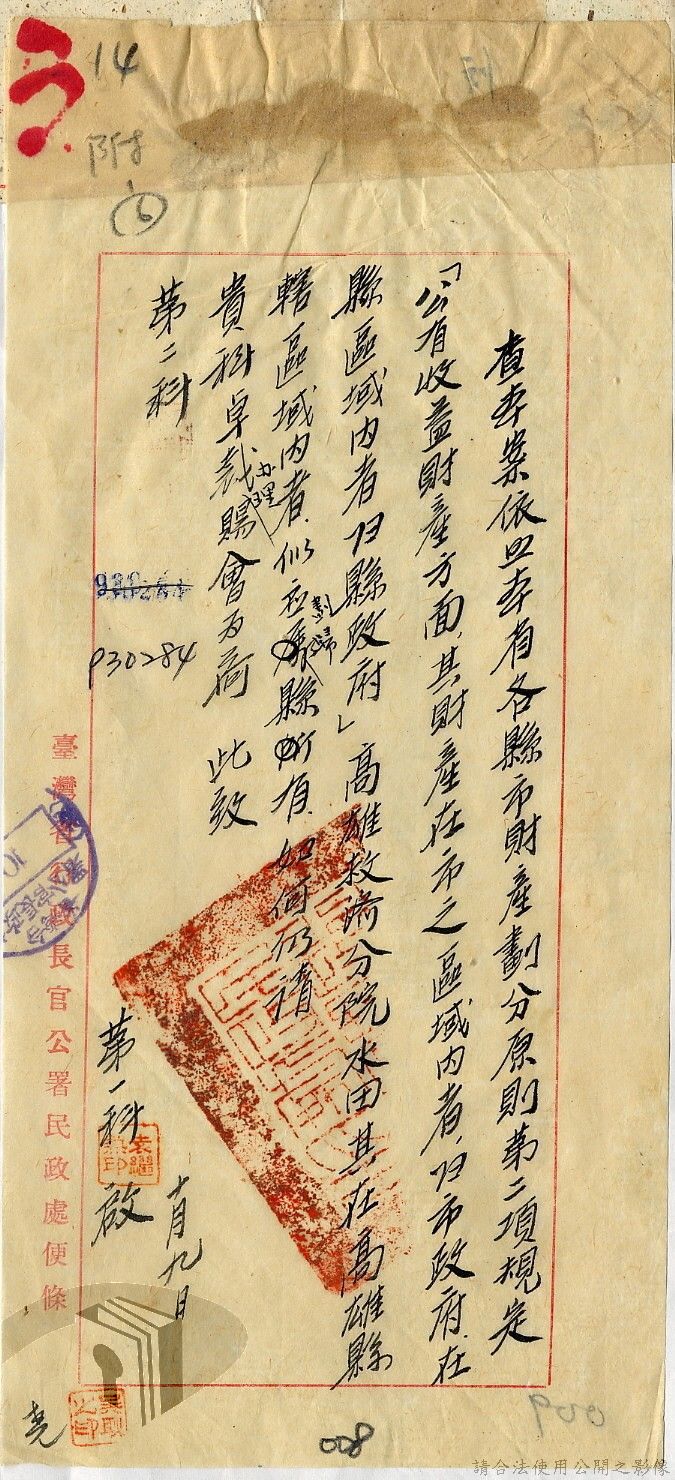 14
附
6
查本案依照本省各縣市財產劃分原則第二項規定
「公有收益財產方面,其財產在市之區域內者,归市政府,在
縣區域內者归縣政府」高雄救济分院水田其在高雄縣
轄區域內者,似应劃歸縣所有,如何仍请
貴科卓裁办理賜會为荷 此致
第二科
第一科
啟
十月九日
930284
930284
臺灣省行政長官公署民政處便條
008
900
請合法使用公開之影像